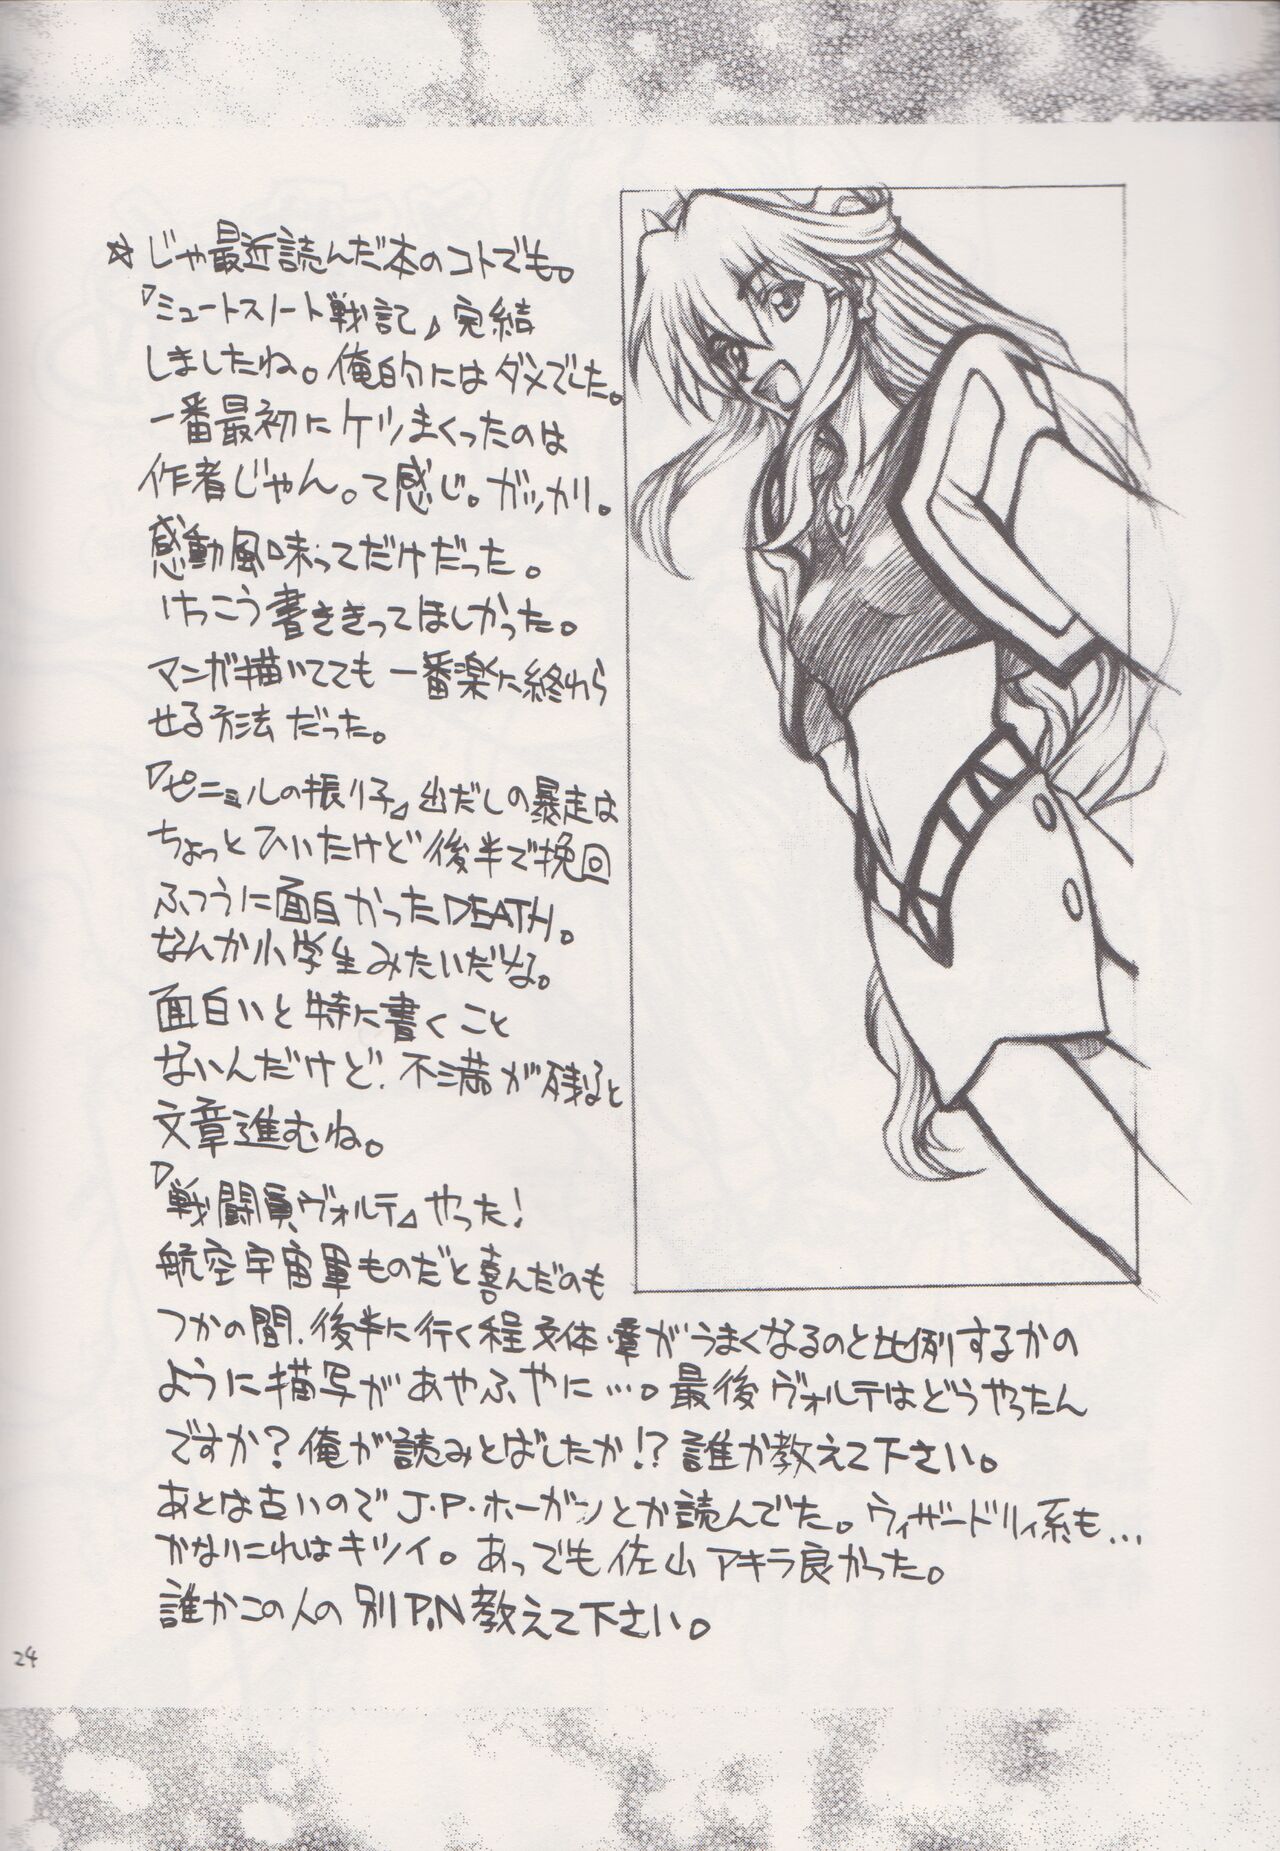 ☆じゃ最近読んだ本のコトでも。
『ミュートスノート戦記』完結
しましたね。俺的にはダメでした。
一番最初にケツまくったのは
作者じゃん。て感じ。ガッカリ。
感動風味ってだけだった。
けっこう書ききってほしかった。
マンガ描いてても一番楽に終わら
せる方法だった。
『ピニェルの振り子』出だしの暴走は
ちょっとひいたけど後半で挽回
ふつうに面白かったDEATH。
なんか小学生みたいだな。
面白いと特に書くこと
ないんだけど、不満が残ると
文章進むね。
『戦闘員ヴォルテ』やった!
航空宇宙軍ものだと喜んだのも
つかの間、後半に行く程文体・章がうまくなるのと比例するかの
ように描写があやふやに…。最後ヴォルテはどうやったん
ですか?俺が読みとばしたか!?誰か教えて下さい。
あとは古いのでJ・P・ホーガンとか読んでた。ウィザードリィ系も…
かないにれはキツイ。あっでも佐山アキラ良かった。
誰かこの人の別P.N教えて下さい。
24